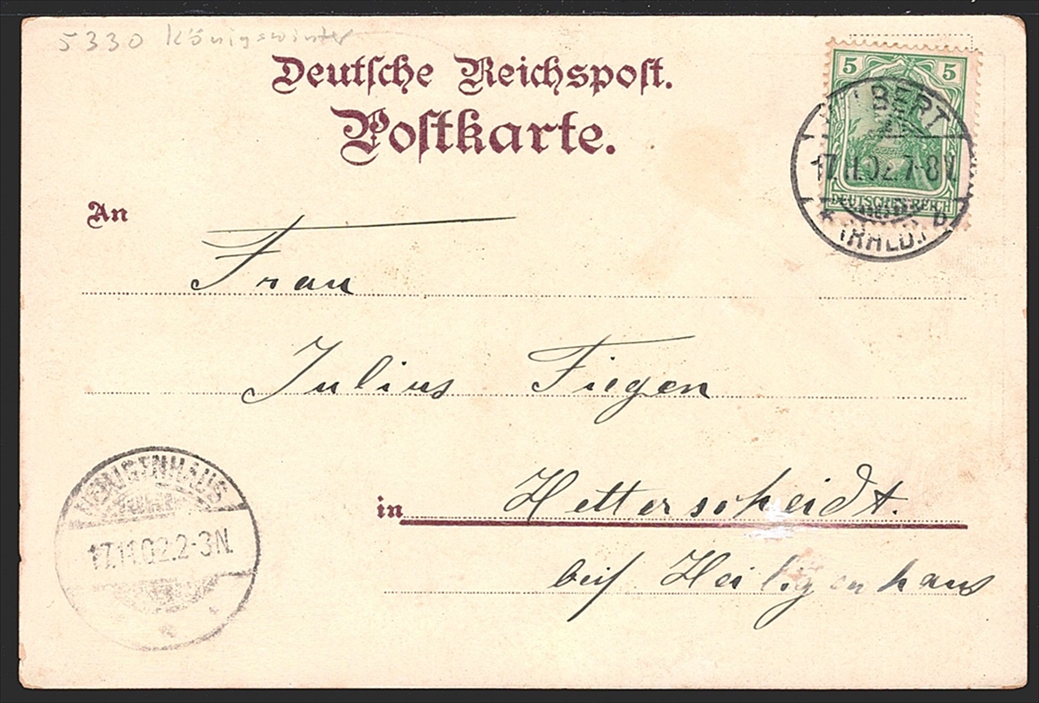 5330 Königswinter
Deutsche Reichspost.
Postkarte.
5 5
BERT
17.11.02.7-8V.
DEUTSCHES REICH
* (RHLD.) b
An
Frau
Julius Fiegen
HEILIGENHAUS
17.11.02.2-3N.
in Hetterscheidt.
bei Heiligenhaus